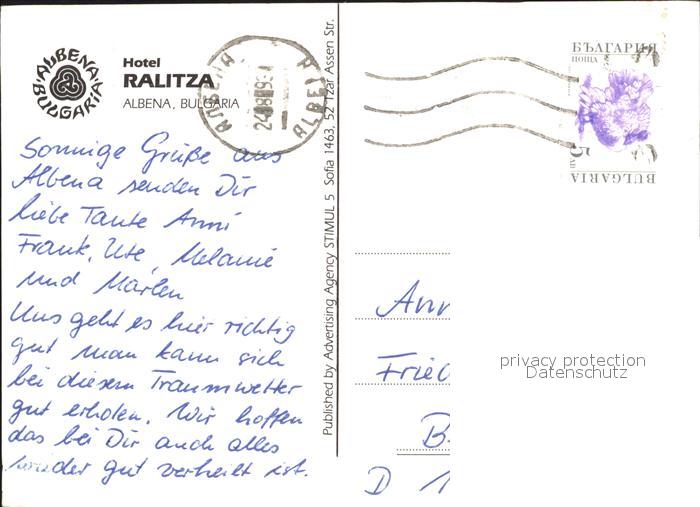 ALBENA
BULGARIA
Hotel
RALITZA
ALBENA, BULGARIA
Sonnige Grüße aus
Albena senden Dir
liebe Tante Anni
Frank, Ute, Melanie
und Marlen
Uns geht es hier richtig
gut man kann sich
bei diesem Traumwetter
gut erholen. Wir hoffen
das bei Dir auch alles
wieder gut verheilt ist.
Published by Advertising Agency STIMUL 5 Sofia 1463, 52 Tzar Assen Str.
БЪЛГАРИЯ
ПОЩА
5
BULGARIA
Ann
Fried
B
D 1
privacy protection
Datenschutz